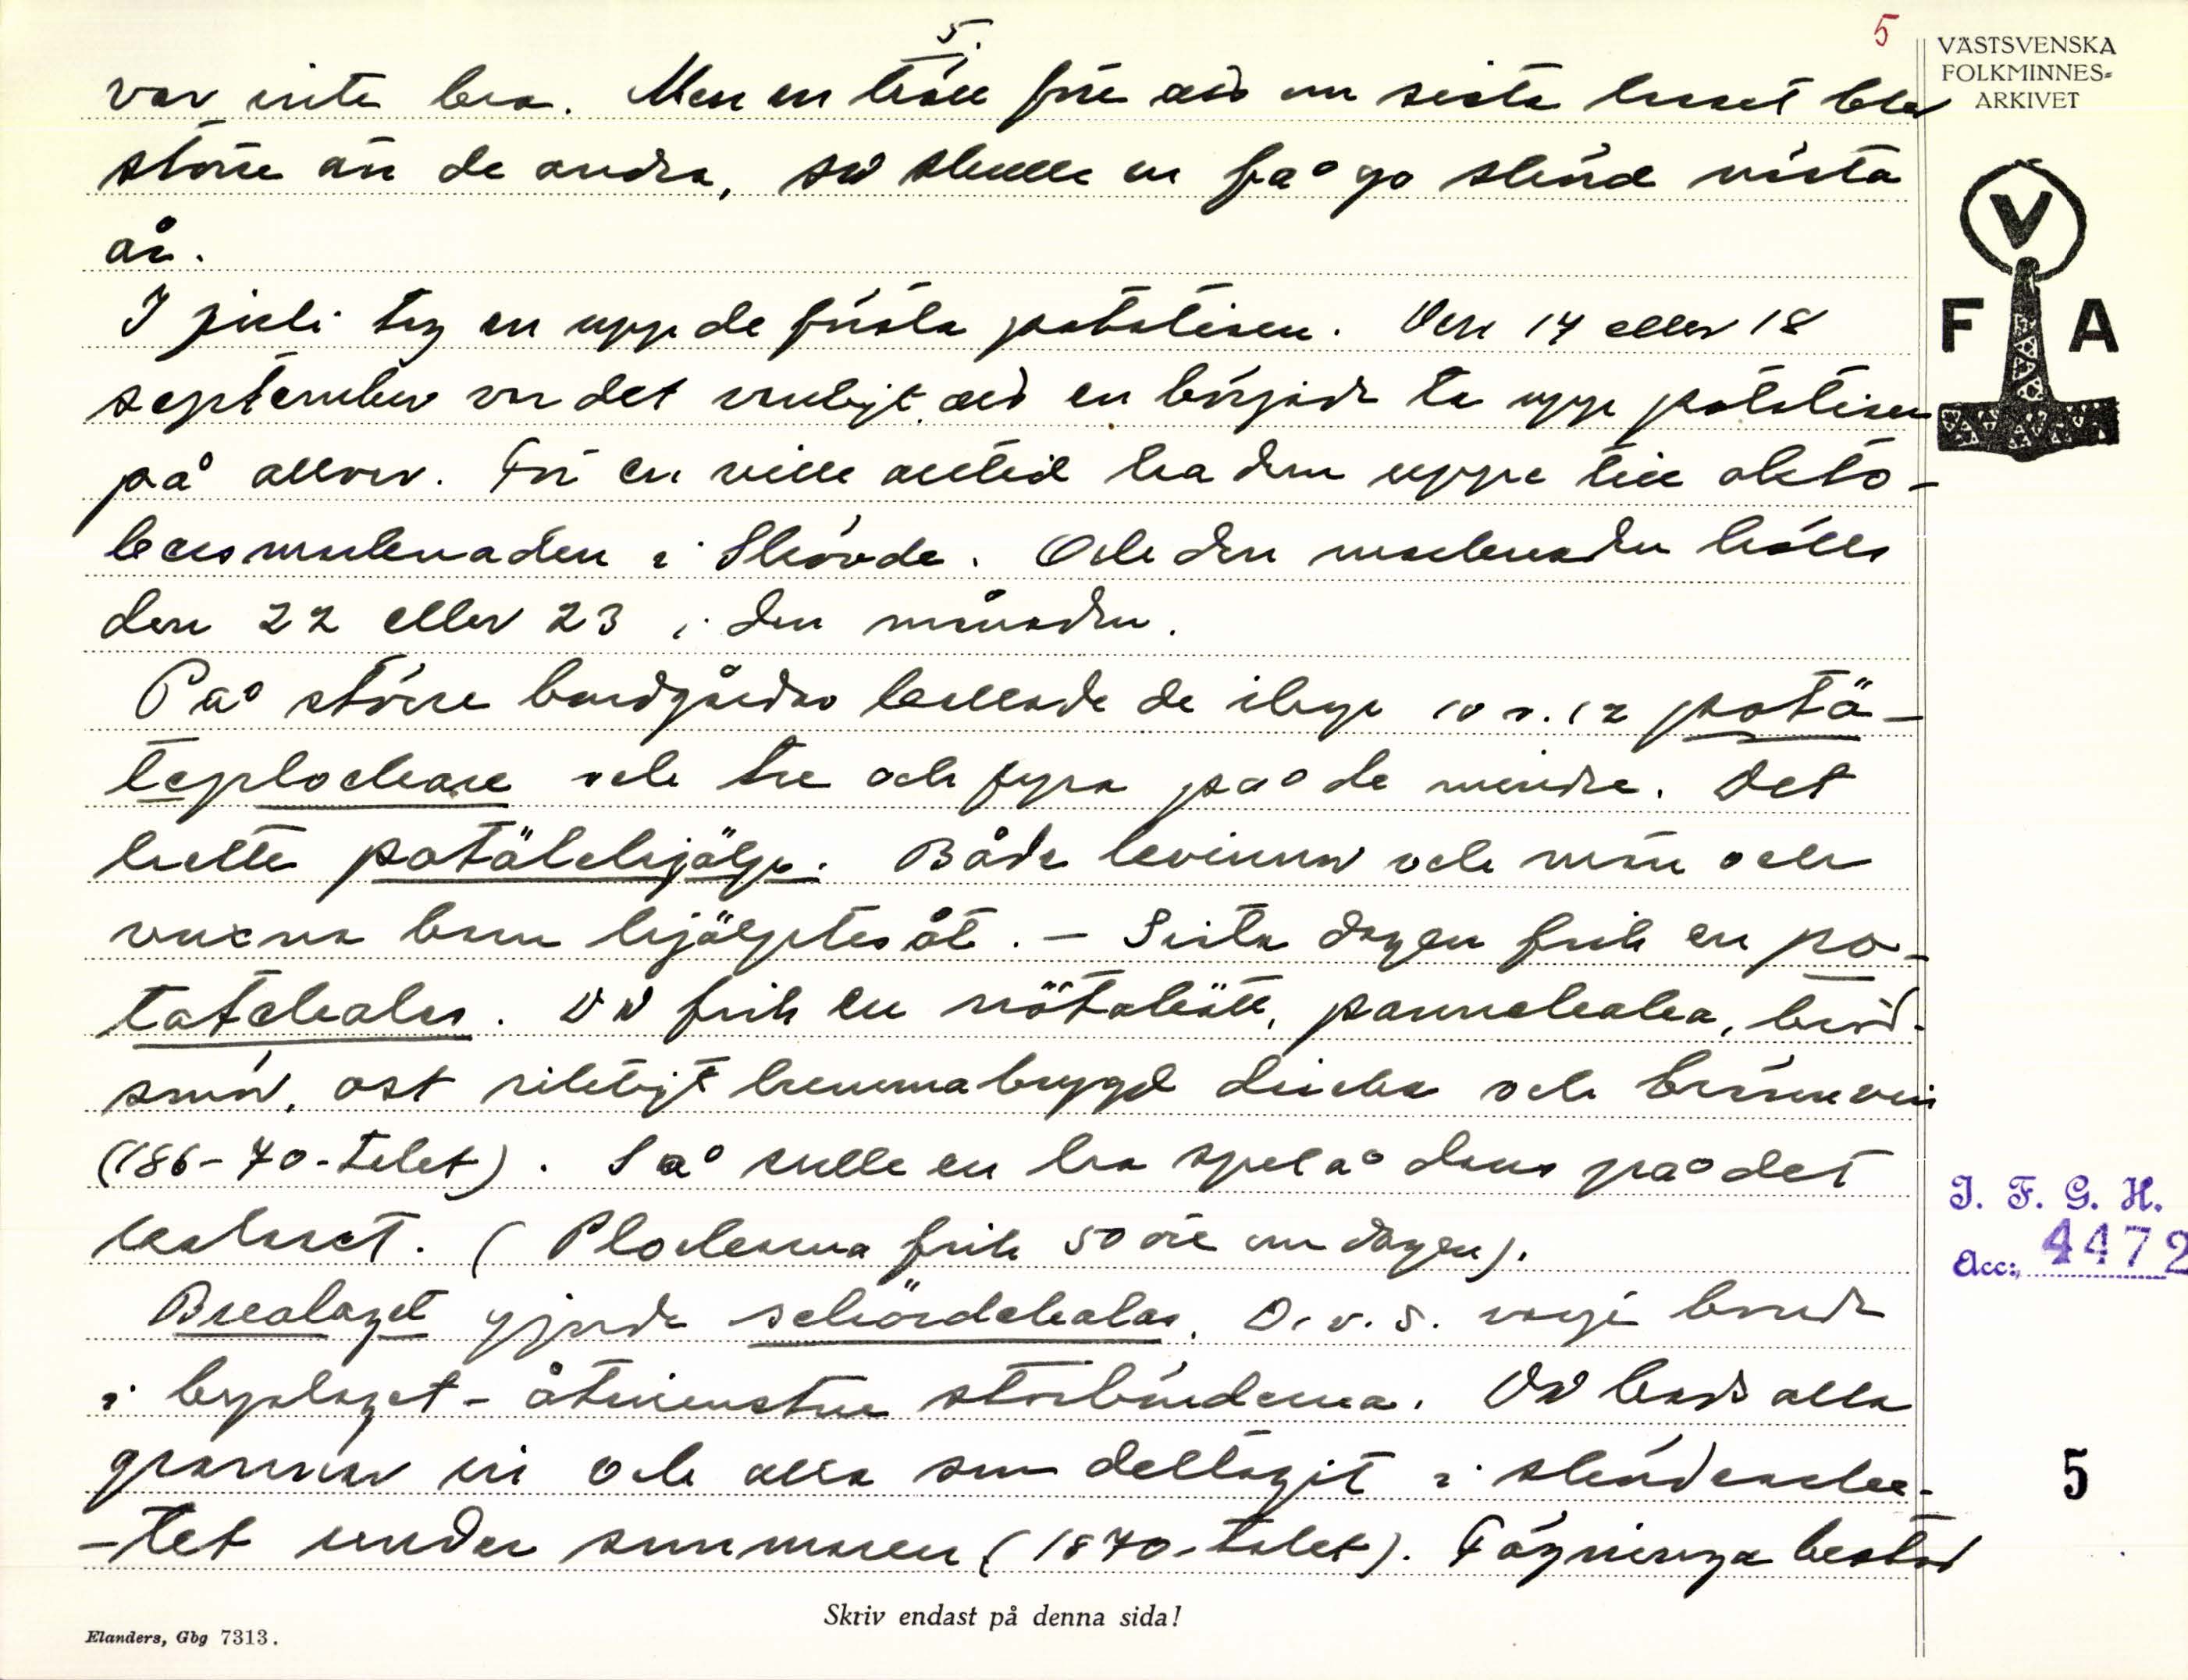 5.
5
VÄSTSVENSKA
FOLKMINNES-
ARKIVET
var inte bra. Men en höll före att om sista lasset blev
större än de andra, så skulle en få go skörd nästa
år.
V
F A
I juli tog en upp de första potatisen. Den 17 eller 18
september var det vanligt att en började ta upp potatisen
på allvar. För en ville alltid ha dem uppe till okto-
bersmarknaden i Skövde. Och den marknaden hölls
den 22 eller 23 i den månaden.
På större bondgårdar kallade de ihop 10 a. 12 potä-
teplockare och tre och fyra på de mindre. Det
hette potätehjälp. Både kvinnor och män och
vuxna barn hjälptes åt. – Sista dagen fick en po-
tatekalas. Då fick en nötakött, pannekaka, bröd
smör, ost riktigt hemmabryggd dricka och brännvin
(186-70-talet). Så sulle en ha spel å dans på det
kalaset. (Plockarna fick 50 öre om dagen).
I. F. G. H.
Acc: 4472
Brealaget gjorde schördekalas. D.v.s. varje bonde
i byalaget - åtminstone storbönderna. Då bads alla
grannar in och alla som deltagit i skördearbe-
-tet under sommaren (1870-talet). Fägninga bestod
5
Skriv endast på denna sida!
Elanders, Gbg 7313.